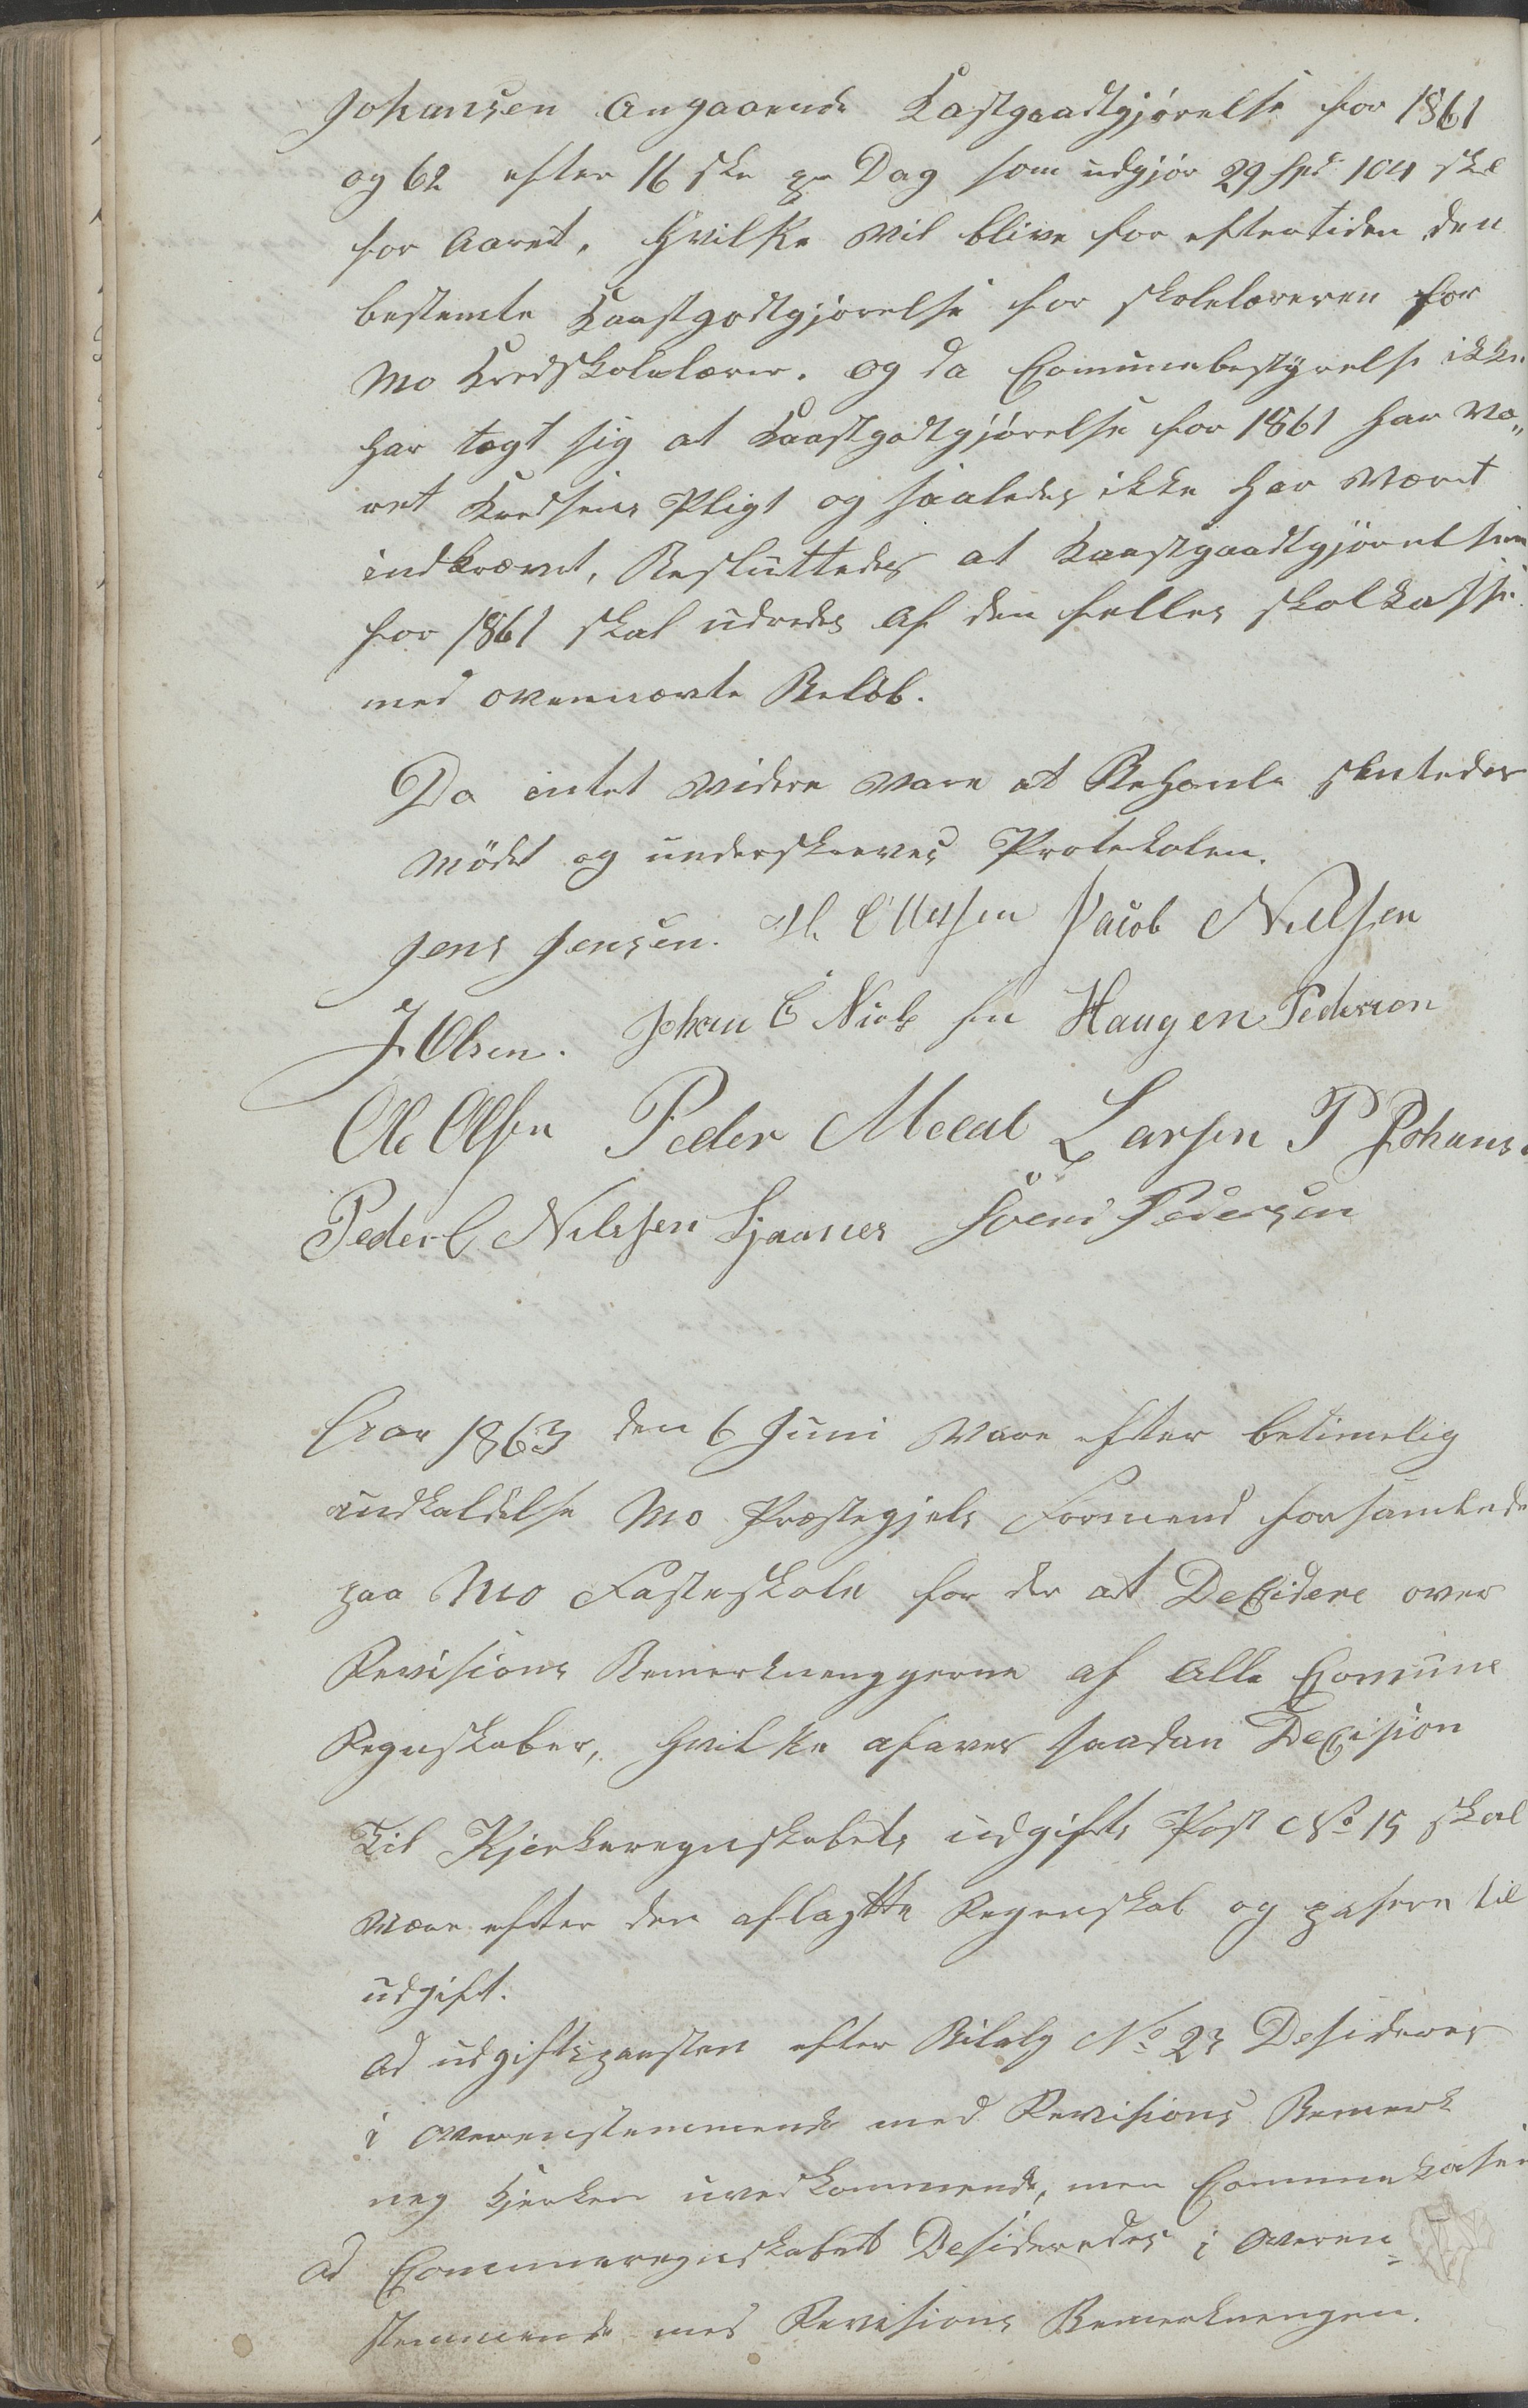 Johansen angaaende Kastgaadtgjörelse for 1861
og 62 efter 16 sk pr Dag som udgjör 29 Spd 104 sk
for Aaret, hvilke vil blive for eftertiden den
bestemte Kaastgodtgjörelse for skolelæreren for
Mo Kredskolelærer. og da Comunebestyrelse ikke
har tægt sig at Kaastgodtgjörelse for 1861 har væ„
ret Kredsens Pligt og saaledes ikke har været
indkrævet, Besluttedes at Kaastgaadtgjörelsen
for 1861 skal udredes af den felles skolkasse
med ovennævte Belöb.
Da intet videre vare at Behanle slutedes
Mödet og underskreves Protokolen.
Jens Jensen. H. Jacob Nielsen
J. Olsen. Johan C Niels sen Haugen Pederson
Ole Olsen Peder Larsen P Johans.
Peder C. Nilssen Sjaanes Svend Pedersen
Aar 1863 den 6 Juni vare efter betimelig
indkaldelse Mo Præstegjels Formend forsamlede
paa Mo Fasteskole for der at Decidere over
Revisions Bemerkninggerne af Alle Comune
Regnskaber, hvilke afaves saadan Decision
Til Kjerkeregnskabets udgifts Post No 15 skal
være efter den aflagtte Regenskab og pasere til
udgift.
ad udgiftspaasten efter Bilalg No 23 Desideres
i overenstemmende med Revisions Bemerk
neg Kjerken uvedkommende, men Communekasen
ad Communeregnskabet Desideredes i overen„
stemmende med Revisions Bemerkningen.